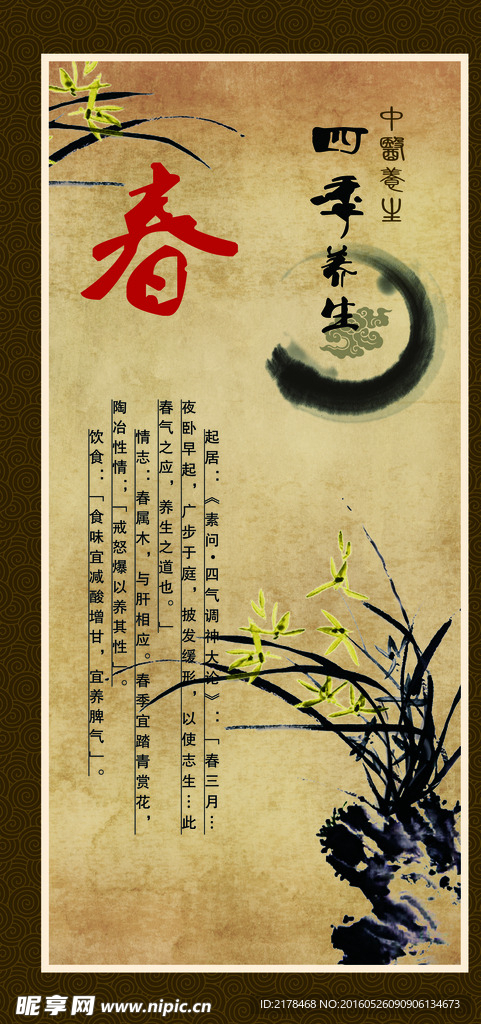 中醫養生
四季养生
春
起居：《素问·四气调神大沦》：「春三月…
夜卧早起，广步于庭，披发缓形，以使志生…此
春气之应，养生之道也。」
情志：春属木，与肝相应。春季宜踏青赏花，
陶冶性情；「戒怒爆以养其性」。
饮食：「食味宜减酸增甘，宜养脾气」。
昵享网 www.nipic.cn
ID:2178468 NO:20160526090906134673